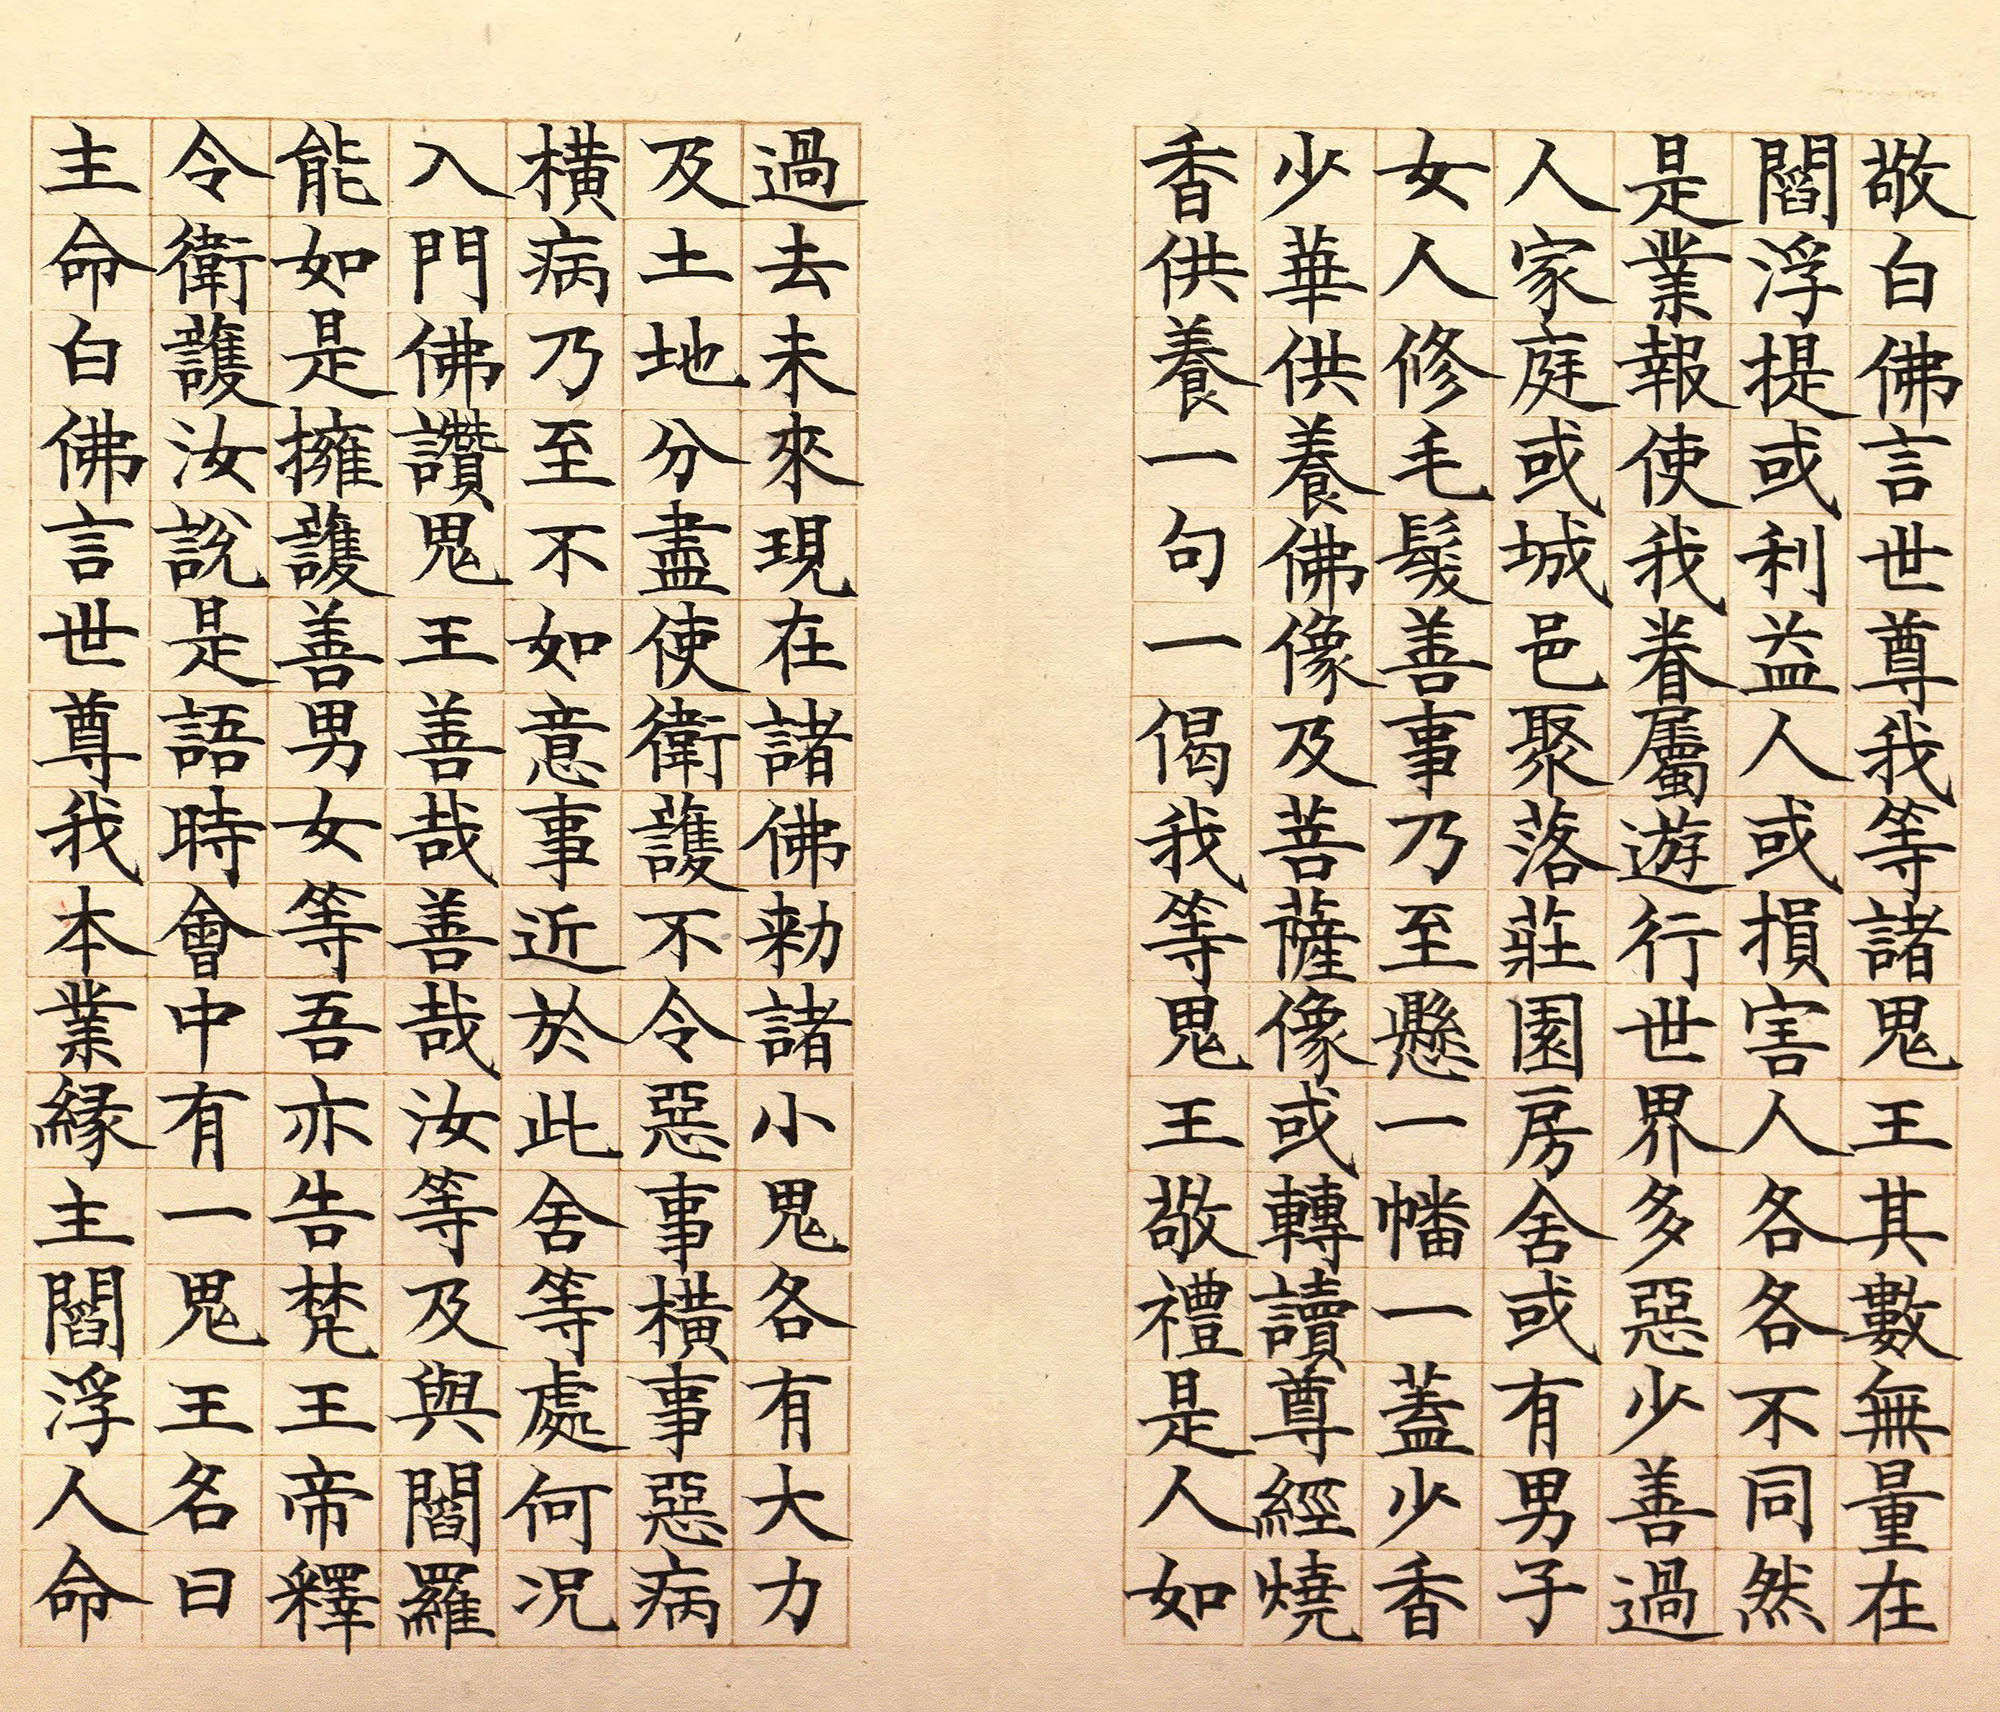 敬白佛言世尊我等諸鬼王其數無量在
閻浮提或利益人或損害人各各不同然
是業報使我眷屬遊行世界多惡少善過
人家庭或城邑聚落莊園房舍或有男子
女人修毛髮善事乃至懸一幡一蓋少香
少華供養佛像及菩薩像或轉讀尊經燒
香供養一句一偈我等鬼王敬禮是人如
過去未來現在諸佛勑諸小鬼各有大力
及土地分盡使衛護不令惡事橫事惡病
橫病乃至不如意事近於此舍等處何況
入門佛讚鬼王善哉善哉汝等及與閻羅
能如是擁護善男女等吾亦告梵王帝釋
令衛護汝說是語時會中有一鬼王名曰
主命白佛言世尊我本業緣主閻浮人命